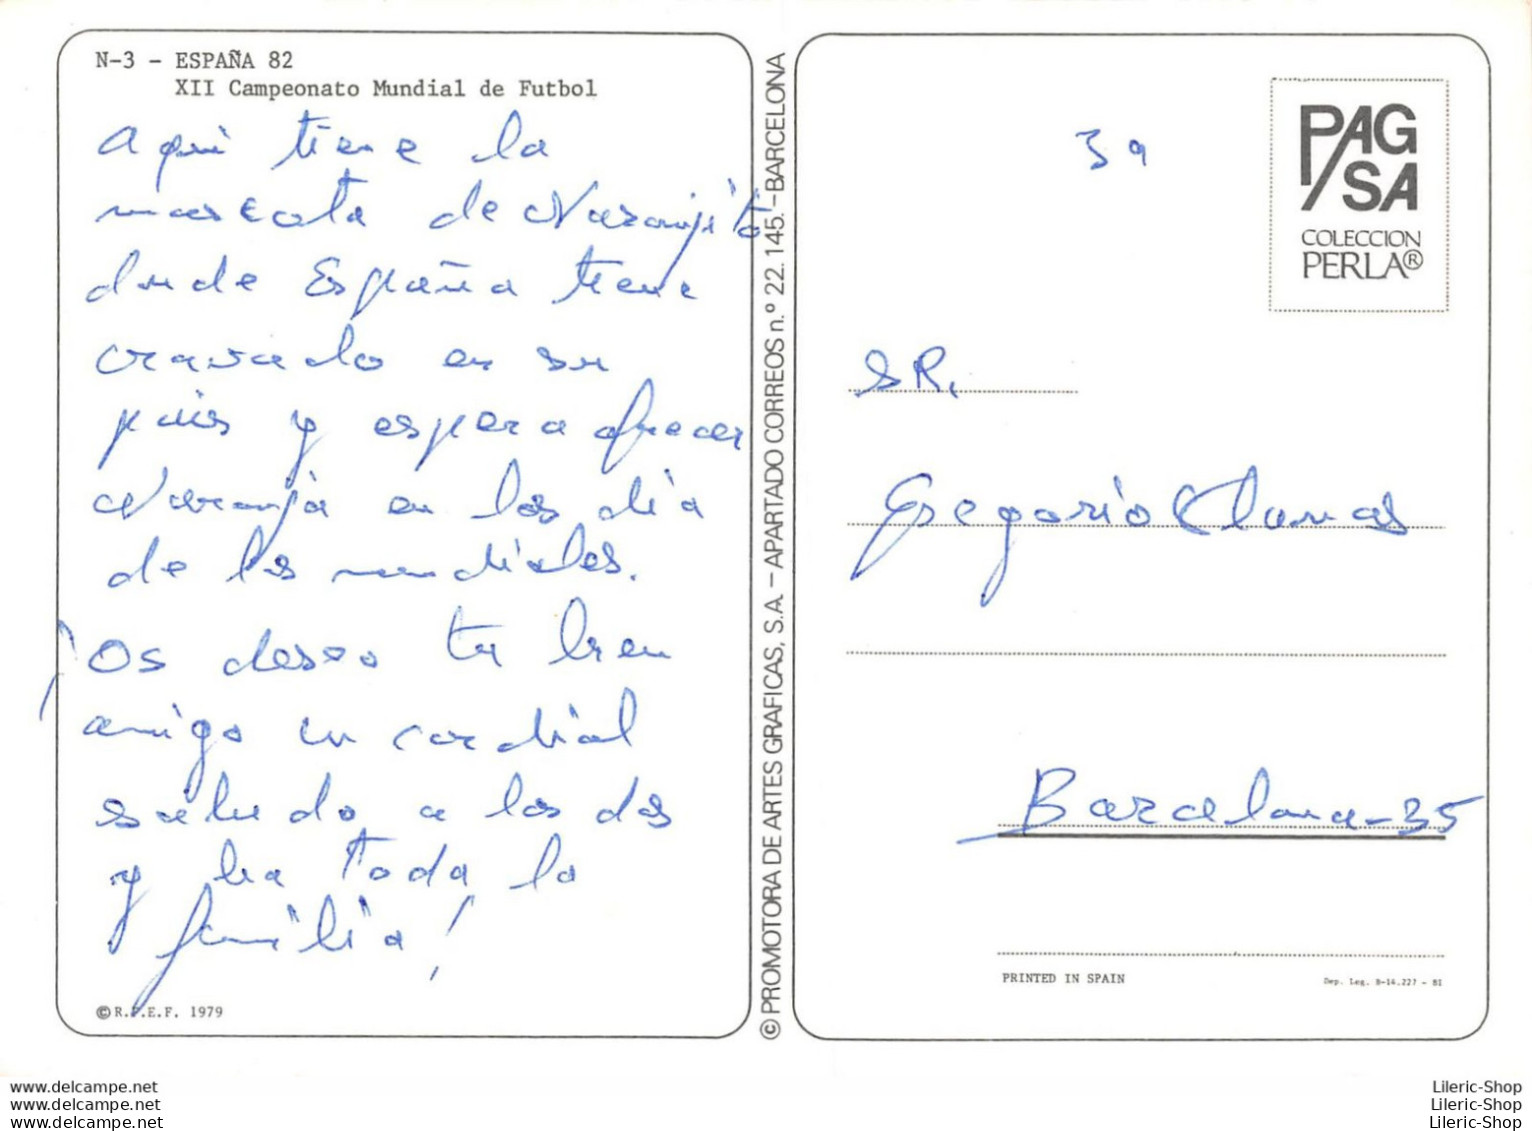 N-3 - ESPAÑA 82
XII Campeonato Mundial de Futbol
Aqui tiene la
mascota de Naranjito
dnde España tiene
cravado en su
pais y espera ofrecer
Naranja en los dia
de los mundiales.
¡Os deseo tu bien
amigo un cordial
saludo a los dos
y ha toda la
familia!
© R.F.E.F. 1979
© PROMOTORA DE ARTES GRAFICAS, S.A. - APARTADO CORREOS n.º 22.145. - BARCELONA
39
PAG
SA
COLECCION
PERLA®
SR.
Gregorio
Barcelona-35
PRINTED IN SPAIN
Dep. Leg. B-14.227 - 81
www.delcampe.net
www.delcampe.net
www.delcampe.net
Lileric-Shop
Lileric-Shop
Lileric-Shop